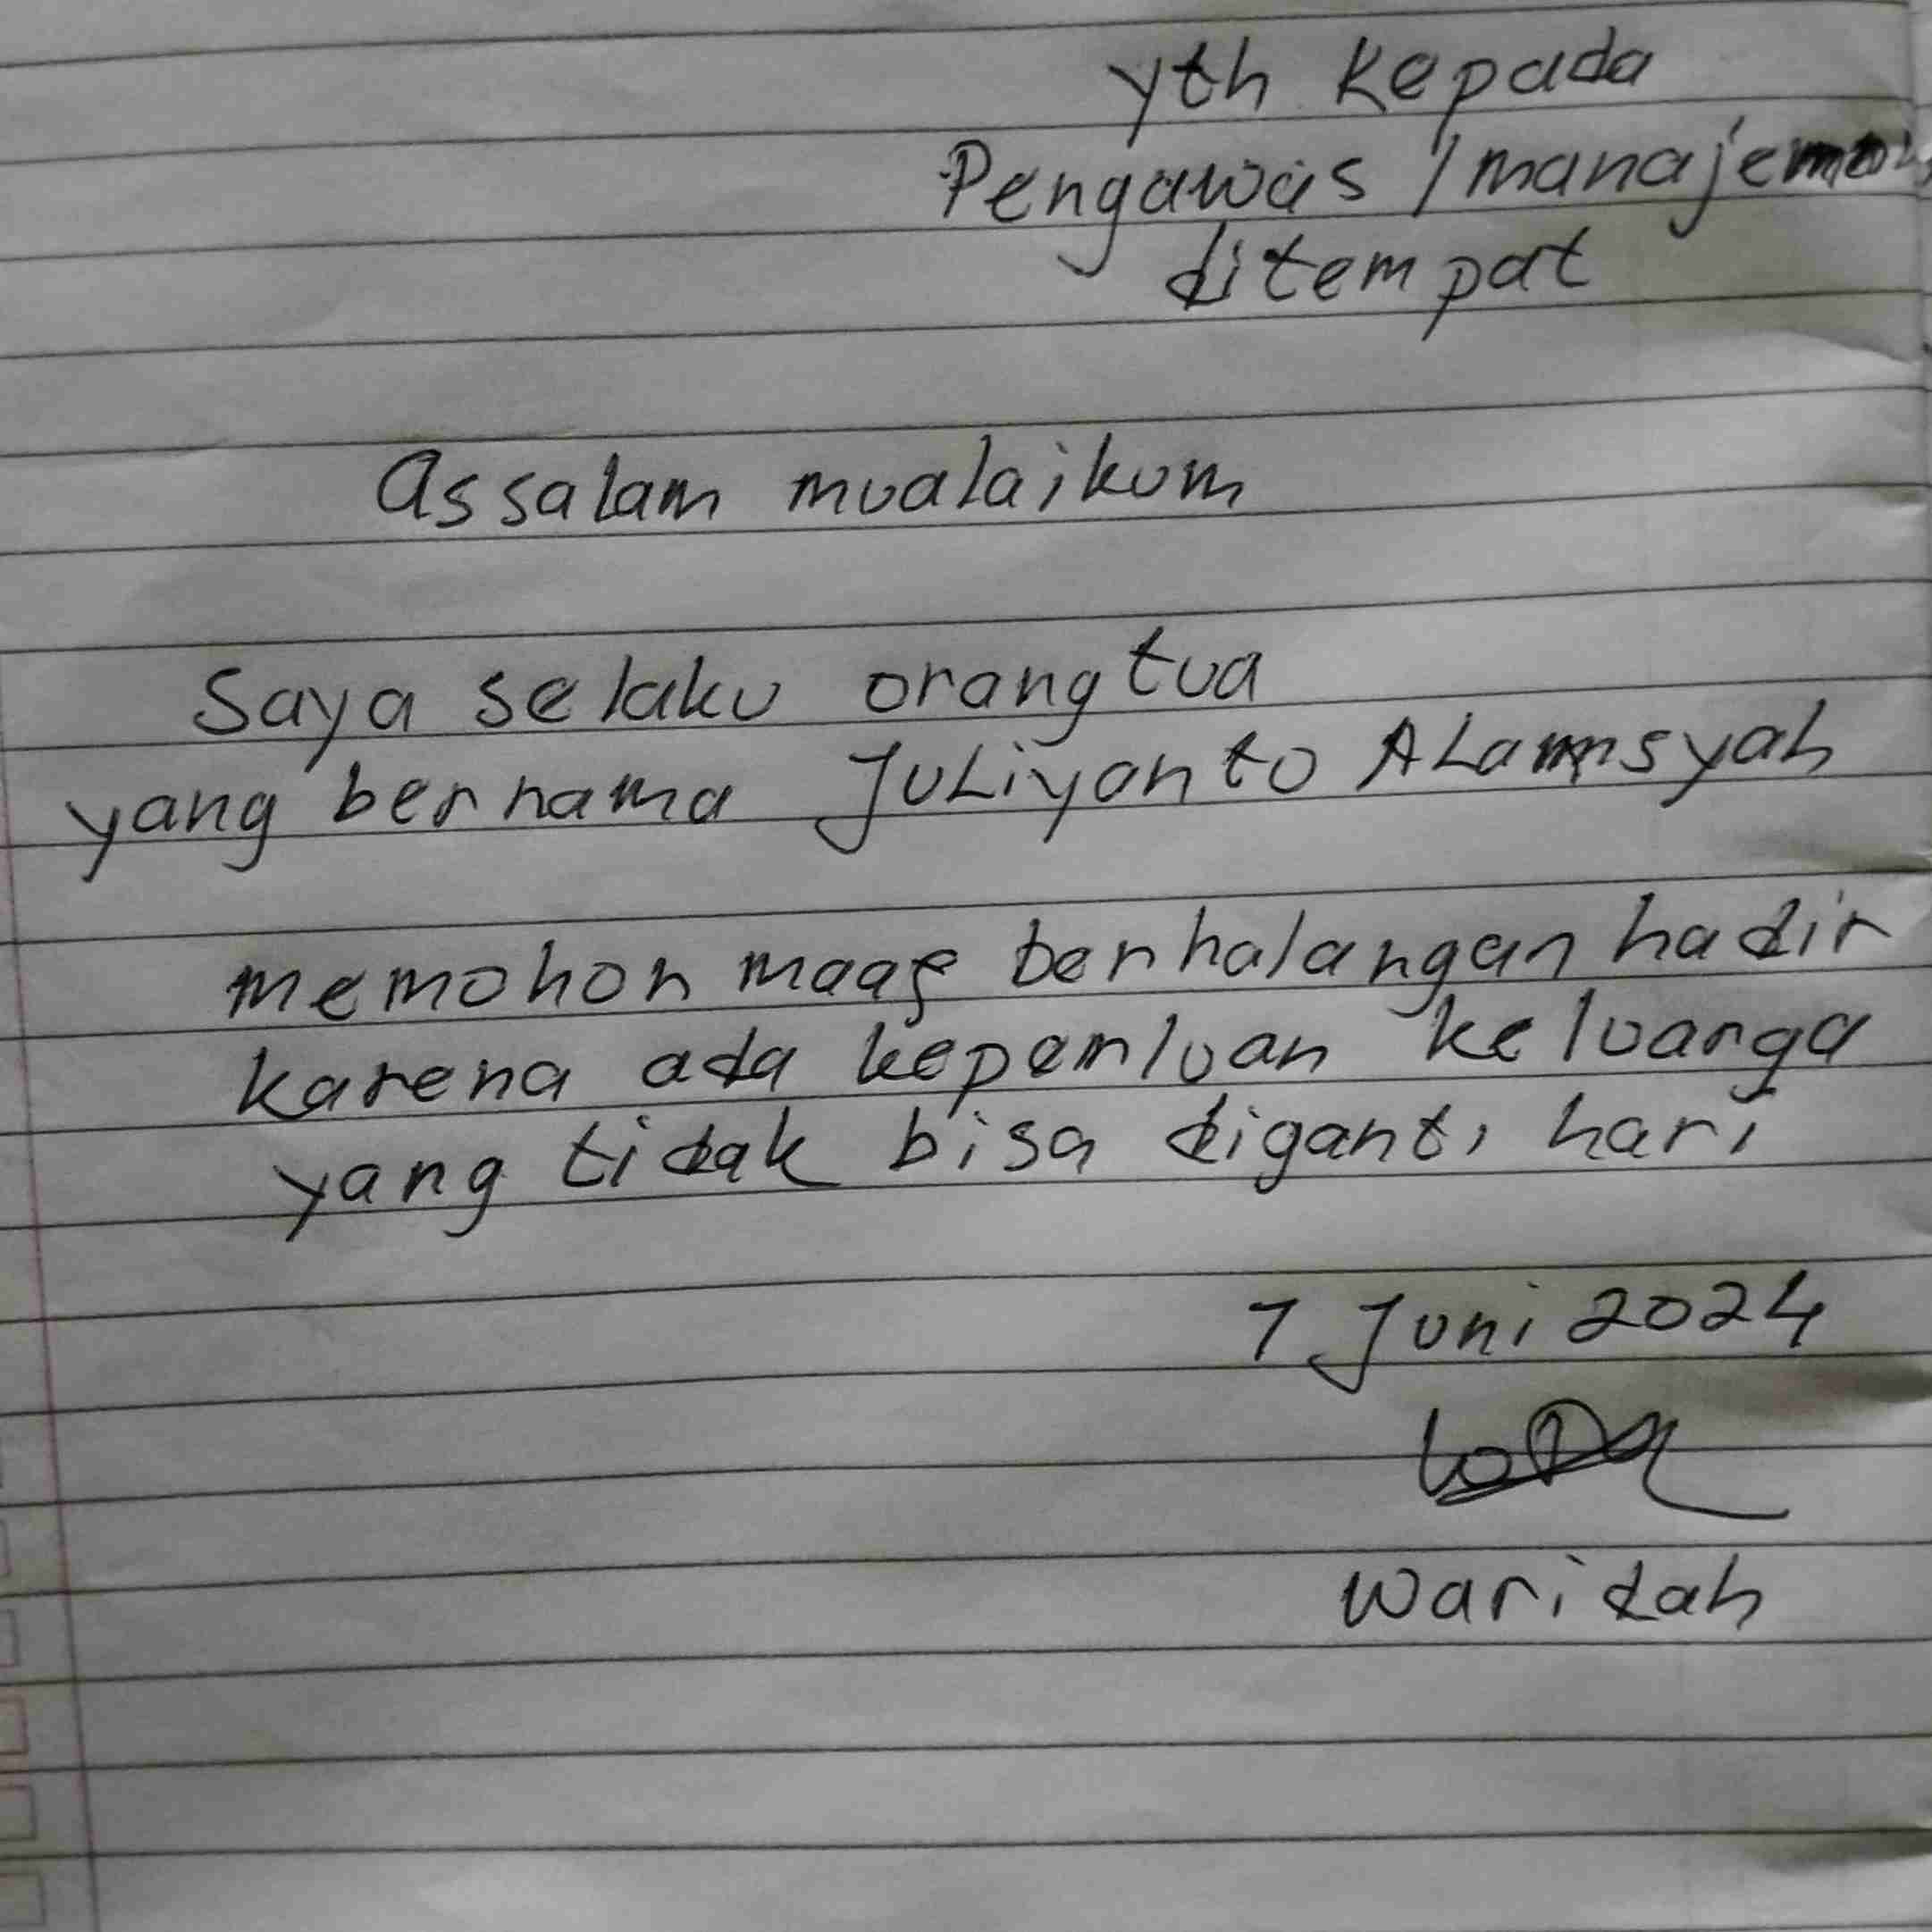 yth Kepada
Pengawas / manajemen
ditempat
Assalam mualaikum
Saya selaku orangtua
yang bernama JuLiyanto ALamsyah
memohon maaf berhalangan hadir
karena ada keperluan keluarga
yang tidak bisa diganti hari
7 Juni 2024
Waridah